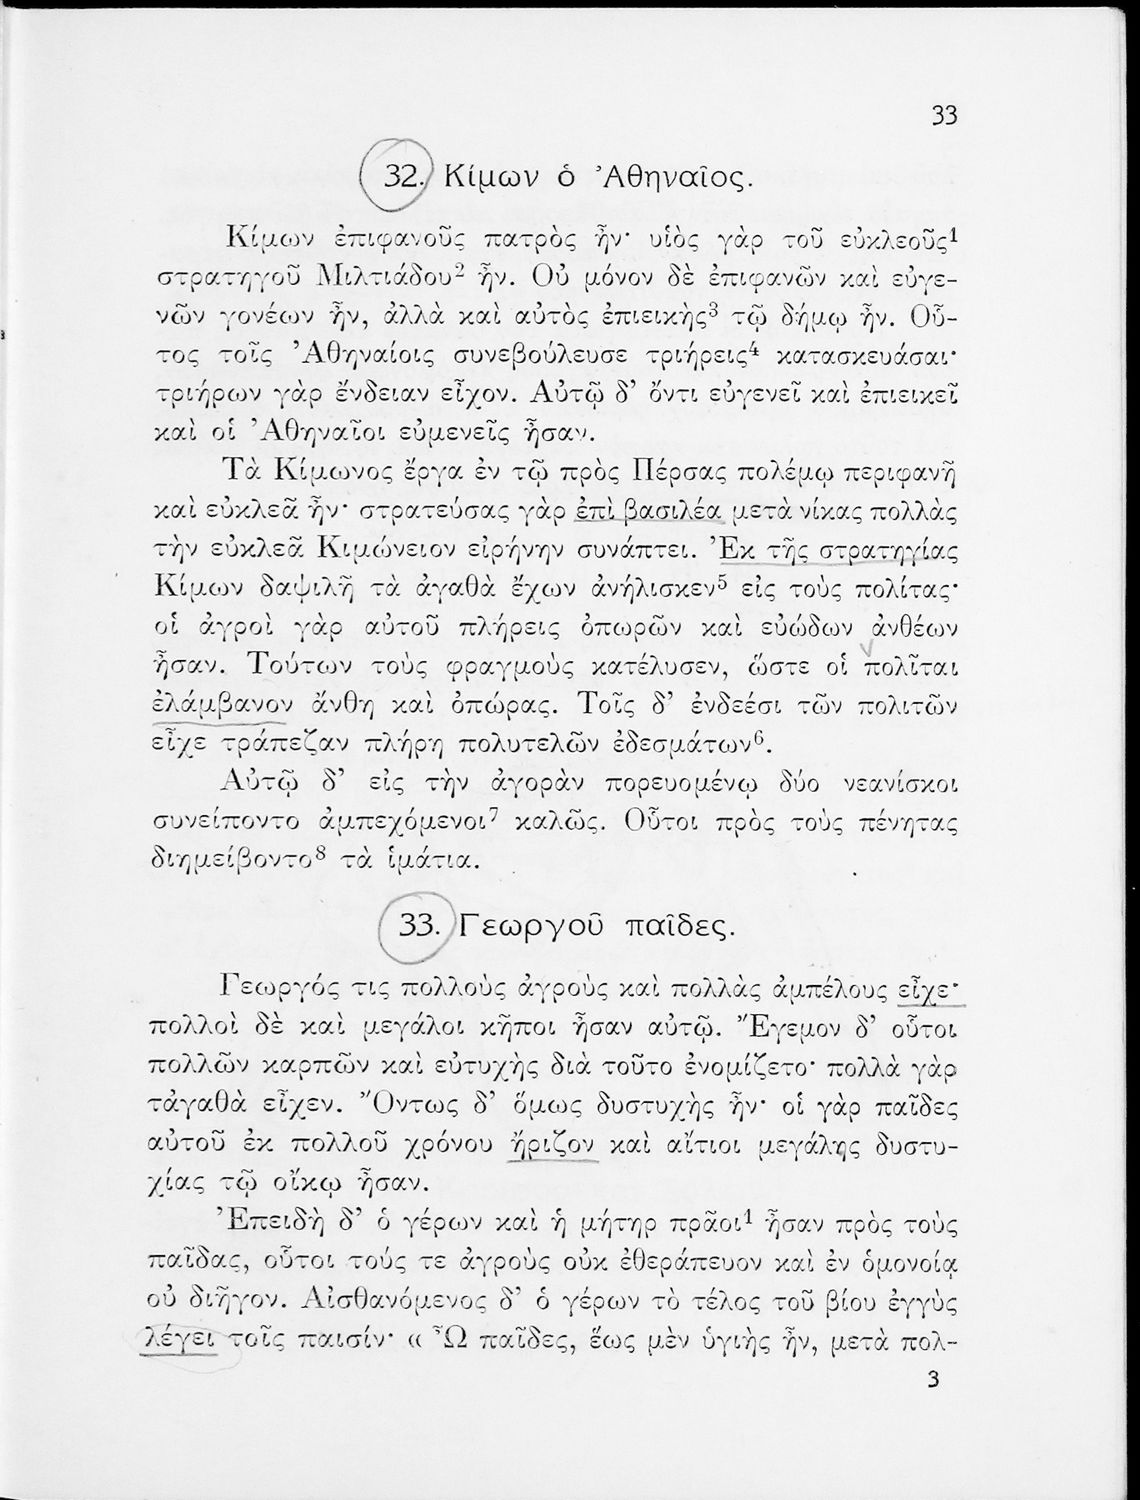 33
32. Κίμων ὁ Ἀθηναῖος.
Κίμων ἐπιφανοῦς πατρὸς ἦν· υἱὸς γὰρ τοῦ εὐκλεοῦς¹
στρατηγοῦ Μιλτιάδου² ἦν. Οὐ μόνον δὲ ἐπιφανῶν καὶ εὐγε-
νῶν γονέων ἦν, ἀλλὰ καὶ αὐτὸς ἐπιεικὴς³ τῷ δήμῳ ἦν. Οὗ-
τος τοῖς Ἀθηναίοις συνεβούλευσε τριήρεις⁴ κατασκευάσαι·
τριήρων γὰρ ἔνδειαν εἶχον. Αὐτῷ δ’ ὄντι εὐγενεῖ καὶ ἐπιεικεῖ
καὶ οἱ Ἀθηναῖοι εὐμενεῖς ἦσαν.
Τὰ Κίμωνος ἔργα ἐν τῷ πρὸς Πέρσας πολέμῳ περιφανῆ
καὶ εὐκλεᾶ ἦν· στρατεύσας γὰρ ἐπὶ βασιλέα μετὰ νίκας πολλὰς
τὴν εὐκλεᾶ Κιμώνειον εἰρήνην συνάπτει. Ἐκ τῆς στρατηγίας
Κίμων δαψιλῆ τὰ ἀγαθὰ ἔχων ἀνήλισκεν⁵ εἰς τοὺς πολίτας·
οἱ ἀγροὶ γὰρ αὐτοῦ πλήρεις ὀπωρῶν καὶ εὐώδων ἀνθέων
ἦσαν. Τούτων τοὺς φραγμοὺς κατέλυσεν, ὥστε οἱ πολῖται
ἐλάμβανον ἄνθη καὶ ὀπώρας. Τοῖς δ’ ἐνδεέσι τῶν πολιτῶν
εἶχε τράπεζαν πλήρη πολυτελῶν ἐδεσμάτων⁶.
Αὐτῷ δ’ εἰς τὴν ἀγορὰν πορευομένῳ δύο νεανίσκοι
συνείποντο ἀμπεχόμενοι⁷ καλῶς. Οὗτοι πρὸς τοὺς πένητας
διημείβοντο⁸ τὰ ἱμάτια.
33. Γεωργοῦ παῖδες.
Γεωργός τις πολλοὺς ἀγροὺς καὶ πολλὰς ἀμπέλους εἶχε·
πολλοὶ δὲ καὶ μεγάλοι κῆποι ἦσαν αὐτῷ. Ἔγεμον δ’ οὗτοι
πολλῶν καρπῶν καὶ εὐτυχὴς διὰ τοῦτο ἐνομίζετο· πολλὰ γὰρ
τἀγαθὰ εἶχεν. Ὄντως δ’ ὅμως δυστυχὴς ἦν· οἱ γὰρ παῖδες
αὐτοῦ ἐκ πολλοῦ χρόνου ἤριζον καὶ αἴτιοι μεγάλης δυστυ-
χίας τῷ οἴκῳ ἦσαν.
Ἐπειδὴ δ’ ὁ γέρων καὶ ἡ μήτηρ πρᾶοι¹ ἦσαν πρὸς τοὺς
παῖδας, οὗτοι τούς τε ἀγροὺς οὐκ ἐθεράπευον καὶ ἐν ὁμονοίᾳ
οὐ διῆγον. Αἰσθανόμενος δ’ ὁ γέρων τὸ τέλος τοῦ βίου ἐγγὺς
λέγει τοῖς παισίν· « Ὦ παῖδες, ἕως μὲν ὑγιὴς ἦν, μετὰ πολ-
3